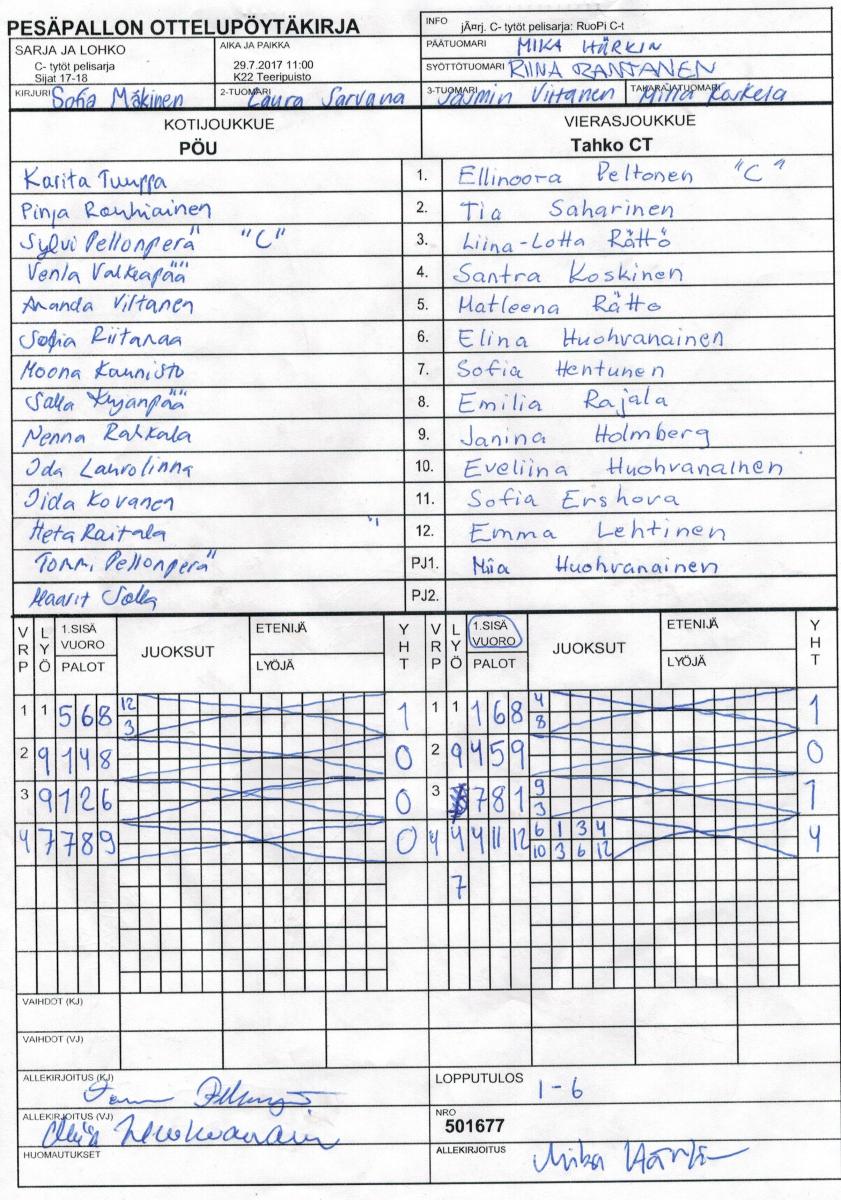 PESÄPALLON OTTELUPÖYTÄKIRJA
INFO jÃ¤rj. C- tytöt pelisarja: RuoPi C-t
SARJA JA LOHKO
C- tytöt pelisarja
Sijat 17-18
AIKA JA PAIKKA
29.7.2017 11:00
K22 Teeripuisto
PÄÄTUOMARI MIKA HÄRKIN
SYÖTTÖTUOMARI RIINA RANTANEN
KIRJURI Sofia Mäkinen 2-TUOMARI Laura Sarvana 3-TUOMARI Jasmin Virtanen TAKARAJATUOMARI Miina Koskela
KOTIJOUKKUE VIERASJOUKKUE
PÖU Tahko CT
Karita Tuuppa 1. Ellinoora Peltonen "C"
Pinja Rouhiainen 2. Tia Saharinen
Sylvi Pellonperä "C" 3. Liina-Lotta Rättö
Venla Valkeapää 4. Santra Koskinen
Ananda Viltanen 5. Matleena Rättö
Sofia Riitanaa 6. Elina Huohvanainen
Moona Kaunisto 7. Sofia Hentunen
Salla Kujanpää 8. Emilia Rajala
Nenna Rahkala 9. Janina Holmberg
Iida Laurolinna 10. Eveliina Huohvanainen
Iida Kovanen 11. Sofia Ershova
Heta Raitala 12. Emma Lehtinen
Tommi Pellonperä PJ1. Miia Huohvanainen
Maarit Salla PJ2.
VRP LYÖ 1.SISÄ VUORO PALOT JUOKSUT ETENIJÄ LYÖJÄ YHT VRP LYÖ 1.SISÄ VUORO PALOT JUOKSUT ETENIJÄ LYÖJÄ YHT
1 1 5 6 8 12 3 1 1 1 1 6 8 4 8 1
2 9 1 4 8 0 2 9 4 5 9 0
3 9 1 2 6 0 3 7 8 1 9 3 1
4 7 7 8 9 0 4 4 4 11 12 6 1 3 4 10 3 6 12 4
7
VAIHDOT (KJ)
VAIHDOT (VJ)
ALLEKIRJOITUS (KJ)
LOPPUTULOS 1-6
ALLEKIRJOITUS (VJ)
NRO
501677
HUOMAUTUKSET
ALLEKIRJOITUS Mika Härkin